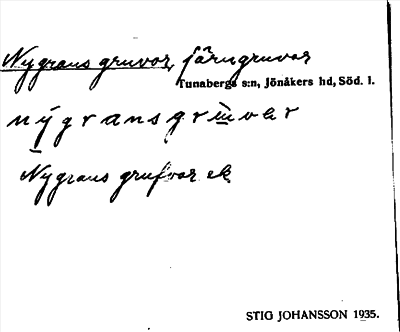 Nygrans gruvor, järngruvor
Tunabergs s:n, Jönåkers hd, Söd. l.
nýgransgrùvar
Nygrans grufvor ek
STIG JOHANSSON 1935.